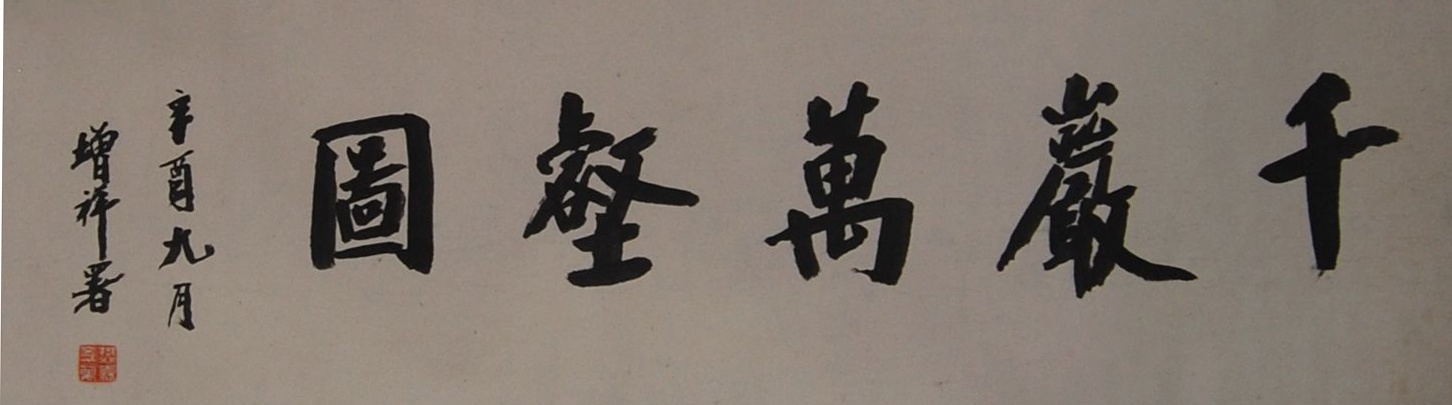 千巖萬壑圖
辛酉九月
增祥署